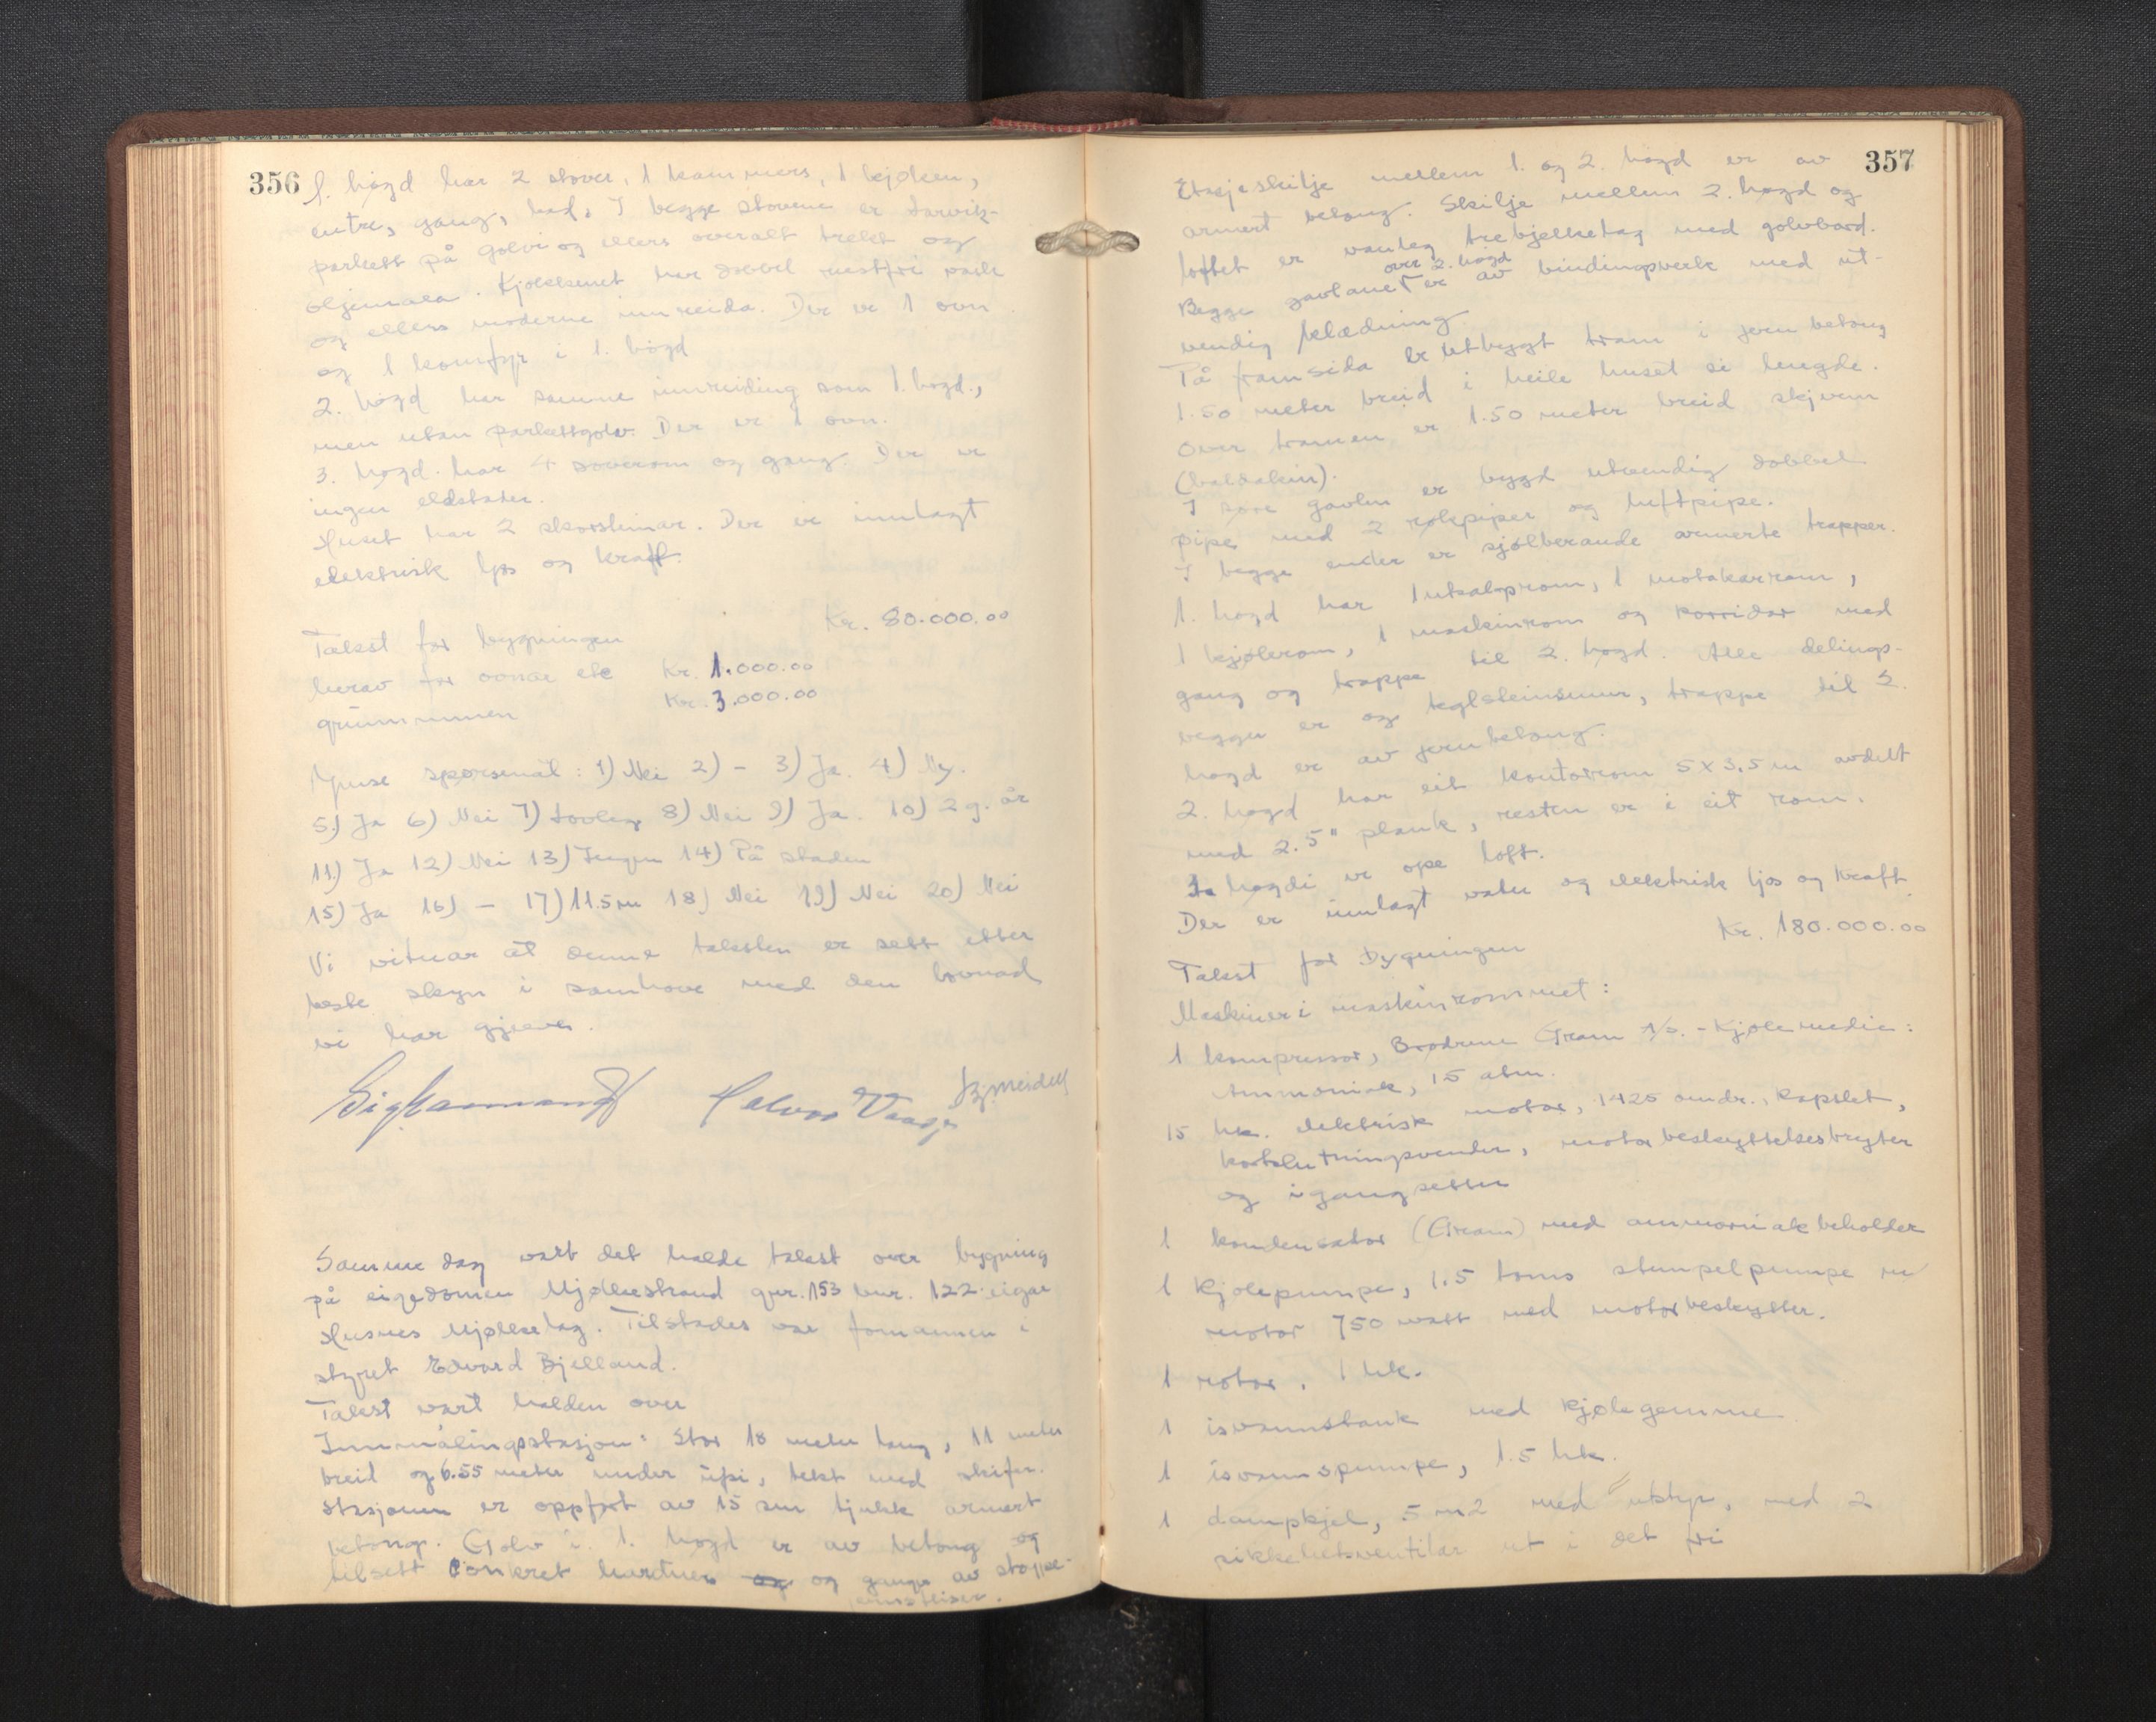 356
1. høgd har 2 stover, 1 kammers, 1 kjøken,
entre, gang, bad. I begge stovene er tarvik-
parkett på golvi og ellers overalt trekt og
oljemala. Kjøkkenet har dobbel rustfri vask
og ellers moderne innreida. Der er 1 ovn
og 1 komfyr i 1. høgd
2. høgd har samme innreiding som 1. høgd.,
men utan parkettgolv. Der er 1 ovn.
3. høgd. har 4 soverom og gang. Der er
ingen eldstader.
Huset har 2 skorsteinar. Der er innlagt
elektrisk ljos og kraft.
Takst for bygningen Kr. 80.000.00
herav for ovnar etc Kr. 1.000.00
grunnmuren Kr. 3.000.00
Ymse spørsmål: 1) Nei 2) - 3) Ja. 4) Ny.
5.) Ja 6) Nei 7) Lovleg 8) Nei 9) Ja. 10) 2 g. år
11.) Ja 12) Nei 13) Ingen 14) På staden
15) Ja 16) - 17) 11.5 m 18) Nei 19) Nei 20) Nei
Vi vitnar at denne taksten er sett etter
beste skyn i samhøve med den lovnad
vi har gjeve.
Samme dag vart det halde takst over bygning
på eigedomen Mjølkestrand gnr. 153 bnr. 122. eigar
Husnes Mjølkelag. Tilstades var formannen i
styret Edvard Bjelland.
Takst vart halden over
Innmålingsstasjon: Stor 18 meter lang, 11 meter
breid og 6.55 meter under ufsi, tekt med skifer.
Stasjonen er oppført av 15 cm tjukk armert
betong. Golv i 1. høgd er av betong og
tilsett Conkret hardner og og gange av støype-
357
Etasjeskilje mellem 1. og 2. høgd er av
armert betong. Skilje mellem 2. høgd og
loftet er vanleg trebjelkelag med golvbord.
over 2. høgd
Begge gavlane er av bindingsverk med ut-
vendig klædning.
På framsida er utbygt tram i jern betong
1.50 meter breid i heile huset si lengde.
Over tramen er 1.50 meter breid skjerm
(baldakin).
I søre gavlen er bygd utvendig dobbel
pipe med 2 røkpiper og luftpipe.
I begge ender er sjølberande armerte trapper.
1. høgd har 1 utsalsrom, 1 motakarrom,
1 kjølerom, 1 maskinrom og korridor med
gang og trappe til 2. høgd. Alle delings-
vegger er og teglsteinsmur, trappe til 2.
høgd er av jernbetong.
2. høgd har eit kontorrom 5 x 3.5 m avdelt
med 2.5" plank, resten er i eit rom.
3. høgdi er ope loft.
Der er innlagt vatn og elektrisk ljos og kraft.
Takst for bygningen Kr. 180.000.00
Maskiner i maskinrommet:
1 kompressor, Brødrene Gram A/S. - Kjølemedie:
Ammoniak, 15 atm.
15 hk. elektrisk motor, 1425 omdr., kapslet,
kortslutningsvender, motorbeskyttelsesbryter
og igangsetter
1 kondensator (Gram) med ammoniakbeholder
1 Kjølepumpe, 1.5 toms stempelpumpe m/
motor 750 watt med motorbeskytter.
1 rotor, 1 hk.
1 isvannstank med kjølegemme
1 isvannspumpe, 1.5 hk.
1 dampkjel, 5 m2 med utstyr, med 2
sikkerhetsventilar ut i det fri